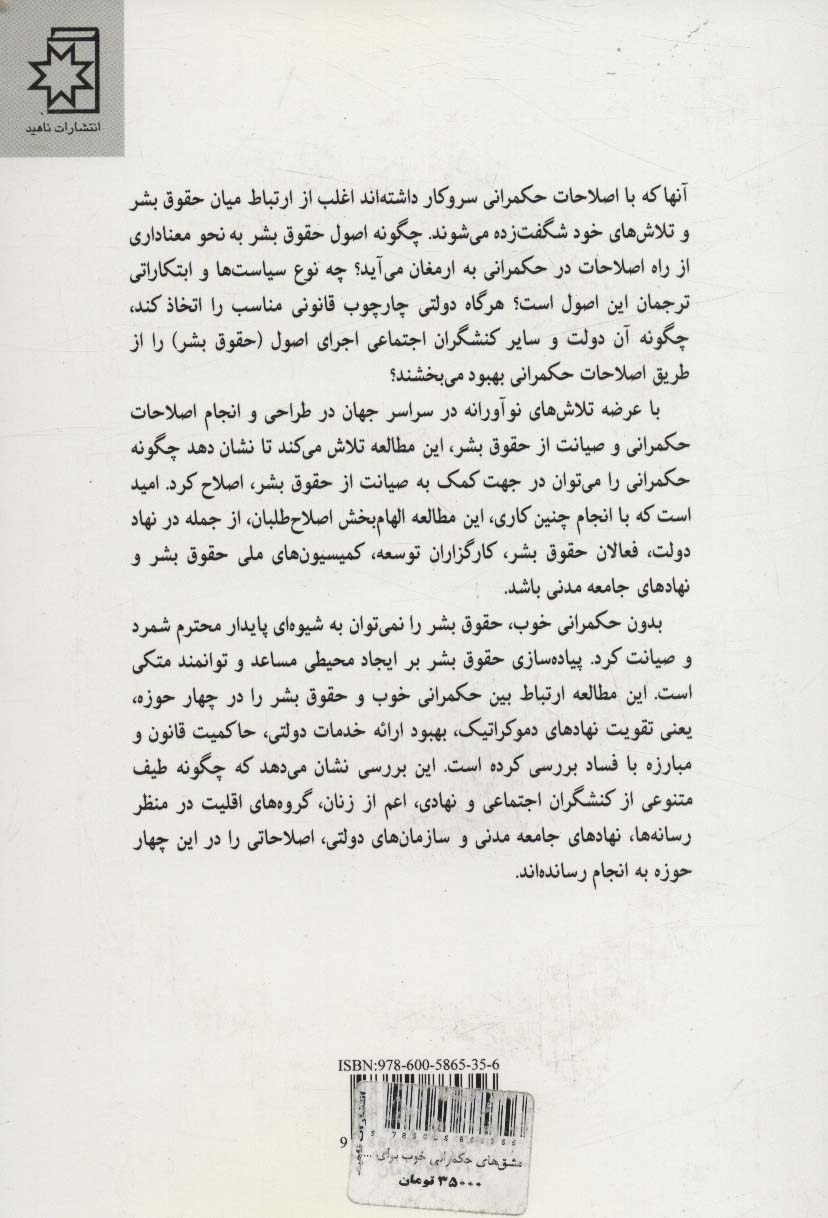 انتشارات ناهید
آنها که با اصلاحات حکمرانی سروکار داشته‌اند اغلب از ارتباط میان حقوق بشر
و تلاش‌های خود شگفت‌زده می‌شوند. چگونه اصول حقوق بشر به نحو معناداری
از راه اصلاحات در حکمرانی به ارمغان می‌آید؟ چه نوع سیاست‌ها و ابتکاراتی
ترجمان این اصول است؟ هرگاه دولتی چارچوب قانونی مناسب را اتخاذ کند،
چگونه آن دولت و سایر کنشگران اجتماعی اجرای اصول (حقوق بشر) را از
طریق اصلاحات حکمرانی بهبود می‌بخشند؟
با عرضه تلاش‌های نوآورانه در سراسر جهان در طراحی و انجام اصلاحات
حکمرانی و صیانت از حقوق بشر، این مطالعه تلاش می‌کند تا نشان دهد چگونه
حکمرانی را می‌توان در جهت کمک به صیانت از حقوق بشر، اصلاح کرد. امید
است که با انجام چنین کاری، این مطالعه الهام‌بخش اصلاح‌طلبان، از جمله در نهاد
دولت، فعالان حقوق بشر، کارگزاران توسعه، کمیسیون‌های ملی حقوق بشر و
نهادهای جامعه مدنی باشد.
بدون حکمرانی خوب، حقوق بشر را نمی‌توان به شیوه‌ای پایدار محترم شمرد
و صیانت کرد. پیاده‌سازی حقوق بشر بر ایجاد محیطی مساعد و توانمند متکی
است. این مطالعه ارتباط بین حکمرانی خوب و حقوق بشر را در چهار حوزه،
یعنی تقویت نهادهای دموکراتیک، بهبود ارائه خدمات دولتی، حاکمیت قانون و
مبارزه با فساد بررسی کرده است. این بررسی نشان می‌دهد که چگونه طیف
متنوعی از کنشگران اجتماعی و نهادی، اعم از زنان، گروه‌های اقلیت در منظر
رسانه‌ها، نهادهای جامعه مدنی و سازمان‌های دولتی، اصلاحاتی را در این چهار
حوزه به انجام رسانده‌اند.
ISBN:978-600-5865-35-6
9
مشق‌های حکمرانی خوب برای ...
۳۵۰۰۰ تومان